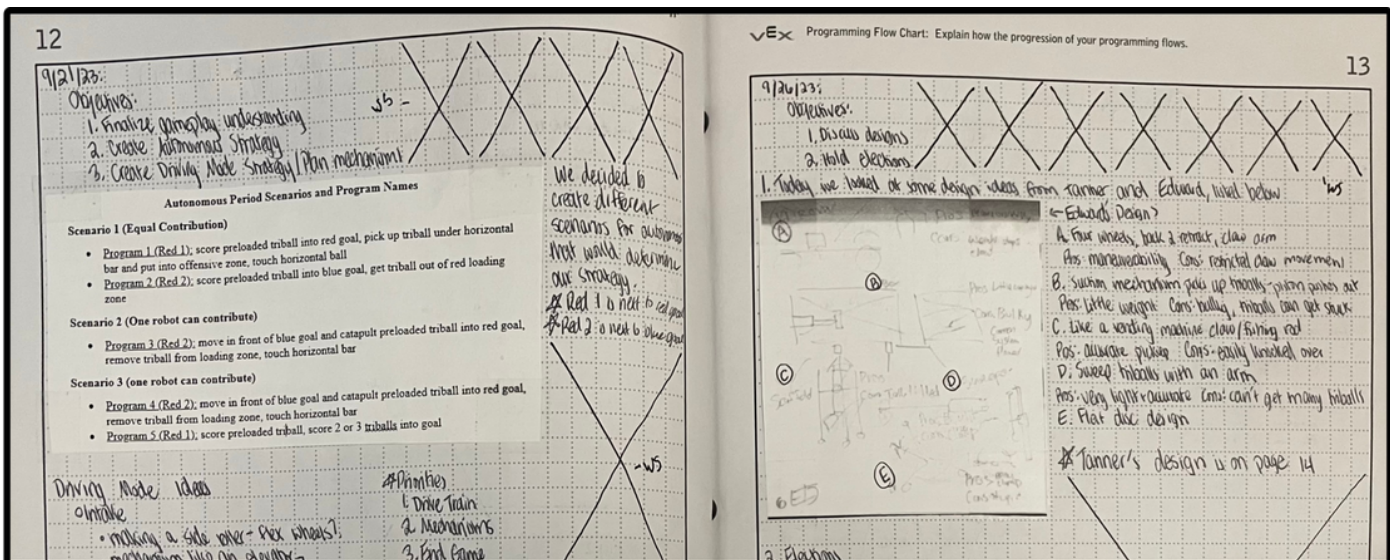 12
9/21/23:
Objectives:
1. Finalize gameplay understanding
2. Create Autonomous Strategy
3. Create Driving Mode Strategy/Plan mechanisms
WS -
Autonomous Period Scenarios and Program Names
Scenario 1 (Equal Contribution)
• Program 1 (Red 1): score preloaded triball into red goal, pick up triball under horizontal
bar and put into offensive zone, touch horizontal ball
• Program 2 (Red 2): score preloaded triball into blue goal, get triball out of red loading
zone
Scenario 2 (One robot can contribute)
• Program 3 (Red 2): move in front of blue goal and catapult preloaded triball into red goal,
remove triball from loading zone, touch horizontal bar
Scenario 3 (one robot can contribute)
• Program 4 (Red 2): move in front of blue goal and catapult preloaded triball into red goal,
remove triball from loading zone, touch horizontal bar
• Program 5 (Red 1): score preloaded triball, score 2 or 3 triballs into goal
We decided to
create different
scenarios for autonomous
that would determine
our strategy.
Red 1 is next to red goal
Red 2 is next to blue goal
-WS
Driving Mode Ideas
Intake
• making a side roller - flex wheels?
mechanism like an elevator
Priorities
1. Drive Train
2. Mechanisms
3. End Game
VEX Programming Flow Chart: Explain how the progression of your programming flows.
13
9/26/23:
Objectives:
1. Discuss designs
2. Hold elections
WS
1. Today we looked at some design ideas from Tanner and Edward, listed below
← Edward Design
A. Four wheels, back 2 retract, claw arm
Pros: maneuverability Cons: restricted claw movement
B. Suction mechanism picks up triballs - piston pushes out
Pros: Little weight Cons: bulky, triballs can get stuck
C. Like a vending machine claw/fishing rod
Pos: accurate pickup Cons: easily knocked over
D. Sweep triballs with an arm
Pros: very light + accurate Cons: can't get many triballs
E. Flat disc design
Tanner's design is on page 14
A
B
C
D
E
2. Elections